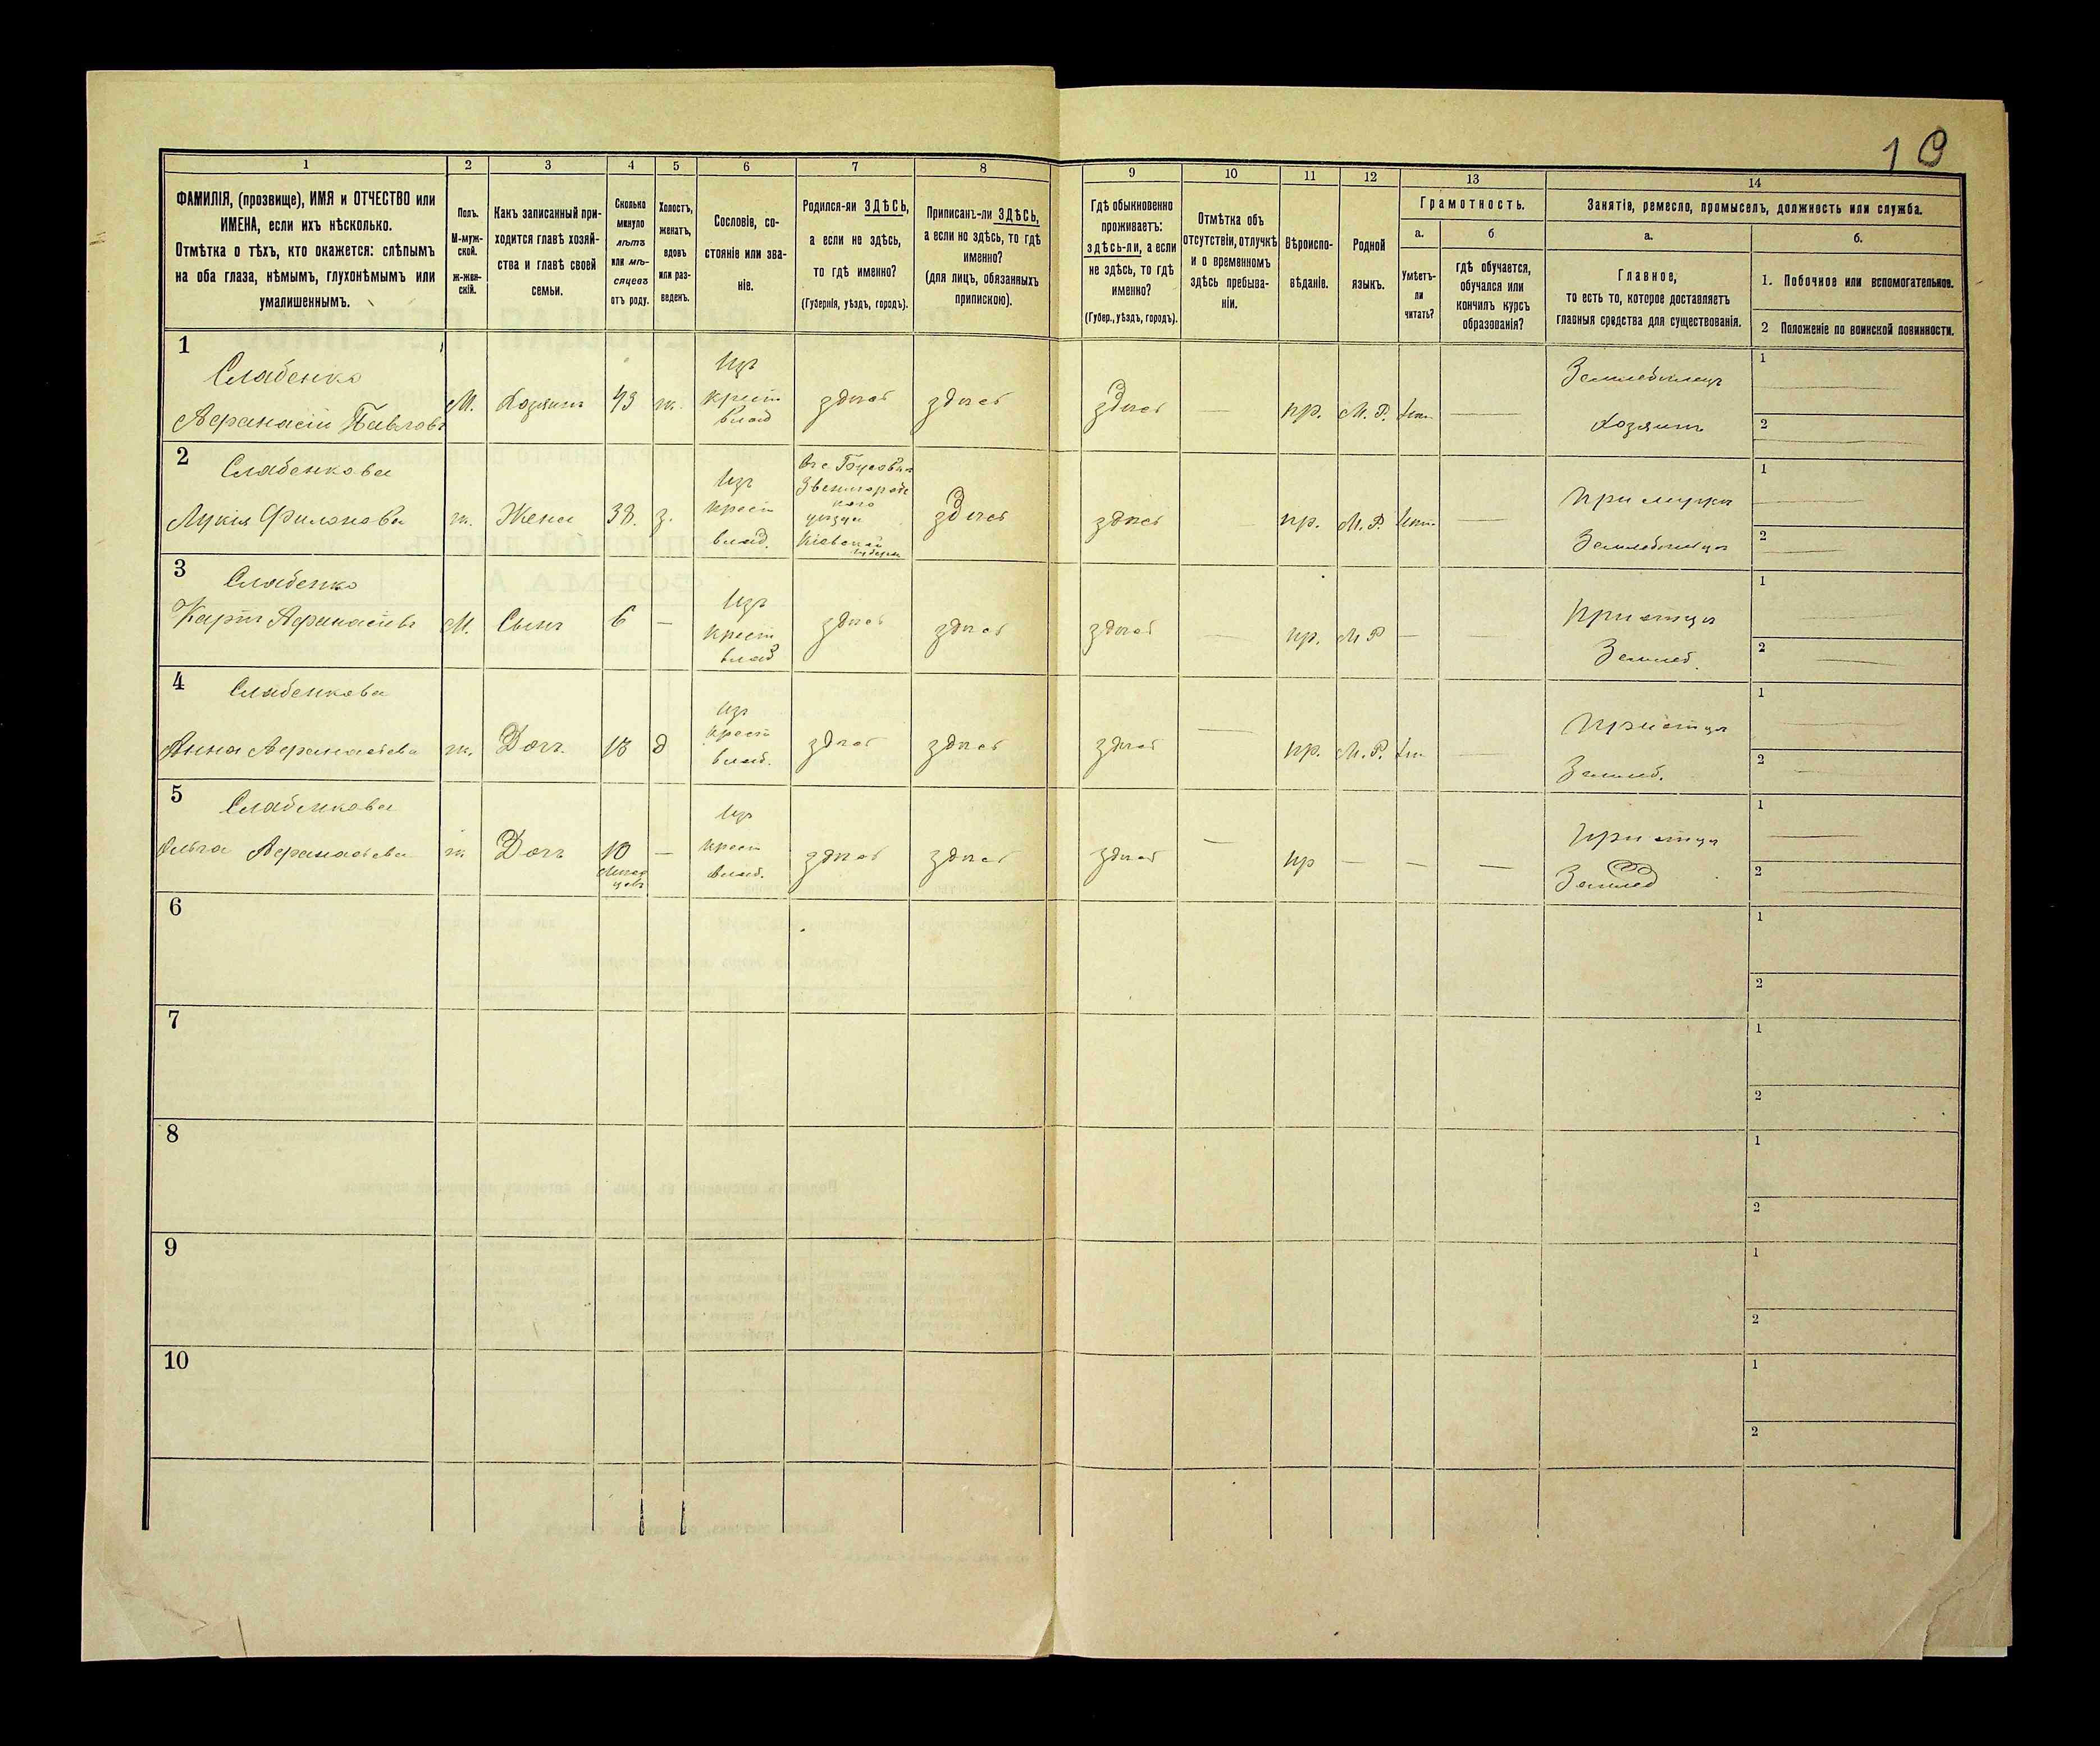 10
1
2
3
4
5
6
7
8
9
10
11
12
13
14
ФАМИЛІЯ, (прозвище), ИМЯ и ОТЧЕСТВО или
ИМЕНА, если ихъ нѣсколько.
Отмѣтка о тѣхъ, кто окажется: слѣпымъ
на оба глаза, нѣмымъ, глухонѣмымъ или
умалишеннымъ.
Полъ.
М-муж-
ской.
ж-жен-
скій.
Какъ записанный при-
ходится главѣ хозяй-
ства и главѣ своей
семьи.
Сколько
минуло
лѣтъ
или мѣ-
сяцевъ
отъ роду.
Холостъ,
женатъ,
вдовъ
или раз-
веденъ.
Сословіе, со-
стояніе или зва-
ніе.
Родился-ли ЗДѢСЬ,
а если не здѣсь,
то гдѣ именно?
(Губернія, уѣздъ, городъ).
Приписанъ-ли ЗДѢСЬ,
а если но здѣсь, то гдѣ
именно?
(для лицъ, обязанныхъ
припискою).
Гдѣ обыкновенно
проживаетъ:
здѣсь-ли, а если
не здѣсь, то гдѣ
именно?
(Губер., уѣздъ, городъ).
Отмѣтка объ
отсутствіи, отлучкѣ
и о временномъ
здѣсь пребыва-
ніи.
Вѣроиспо-
вѣданіе.
Родной
языкъ.
Грамотность.
а.
Умѣетъ-
ли
читать?
б
гдѣ обучается,
обучался или
кончилъ курсъ
образованія?
Занятіе, ремесло, промыселъ, должность или служба.
а.
Главное,
то есть то, которое доставляетъ
главныя средства для существованія.
б.
1. Побочное или вспомогательное.
2 Положеніе по воинской повинности.
1
Слабенко
Афанасій Павловъ
М.
Хозяинъ
43
ж.
Изъ
крест
влад
здѣсь
здѣсь
здѣсь
—
пр.
М. Р.
—
Землевладелецъ
Хозяинъ
1
2
2
Слабенкова
Лукія Филонова
ж.
Жена
38.
з.
Изъ
крест
влад.
Звенигородс
кого
уѣзда
Кіевской
губерн
здѣсь
здѣсь
—
пр.
М. Р.
—
при мужѣ
1
2
3
Слабенко
Карпъ Афанасіевъ
М.
Сынъ
6
—
Изъ
крест
влад
здѣсь
здѣсь
здѣсь
—
пр.
М Р
—
—
при отцѣ
Землед.
1
2
4
Слабенкова
Анна Афанасіева
ж.
Дочь.
18
д
Изъ
крест
влад.
здѣсь
здѣсь
здѣсь
—
пр.
М. Р.
—
при отцѣ
Землед.
1
2
5
Слабенкова
Ольга Афанасіева
ж
Дочь
10
мѣся
цевъ
—
Изъ
крест
влад.
здѣсь
здѣсь
здѣсь
—
пр
—
—
—
при отцѣ
Землед
1
2
6
1
2
7
1
2
8
1
2
9
1
2
10
1
2